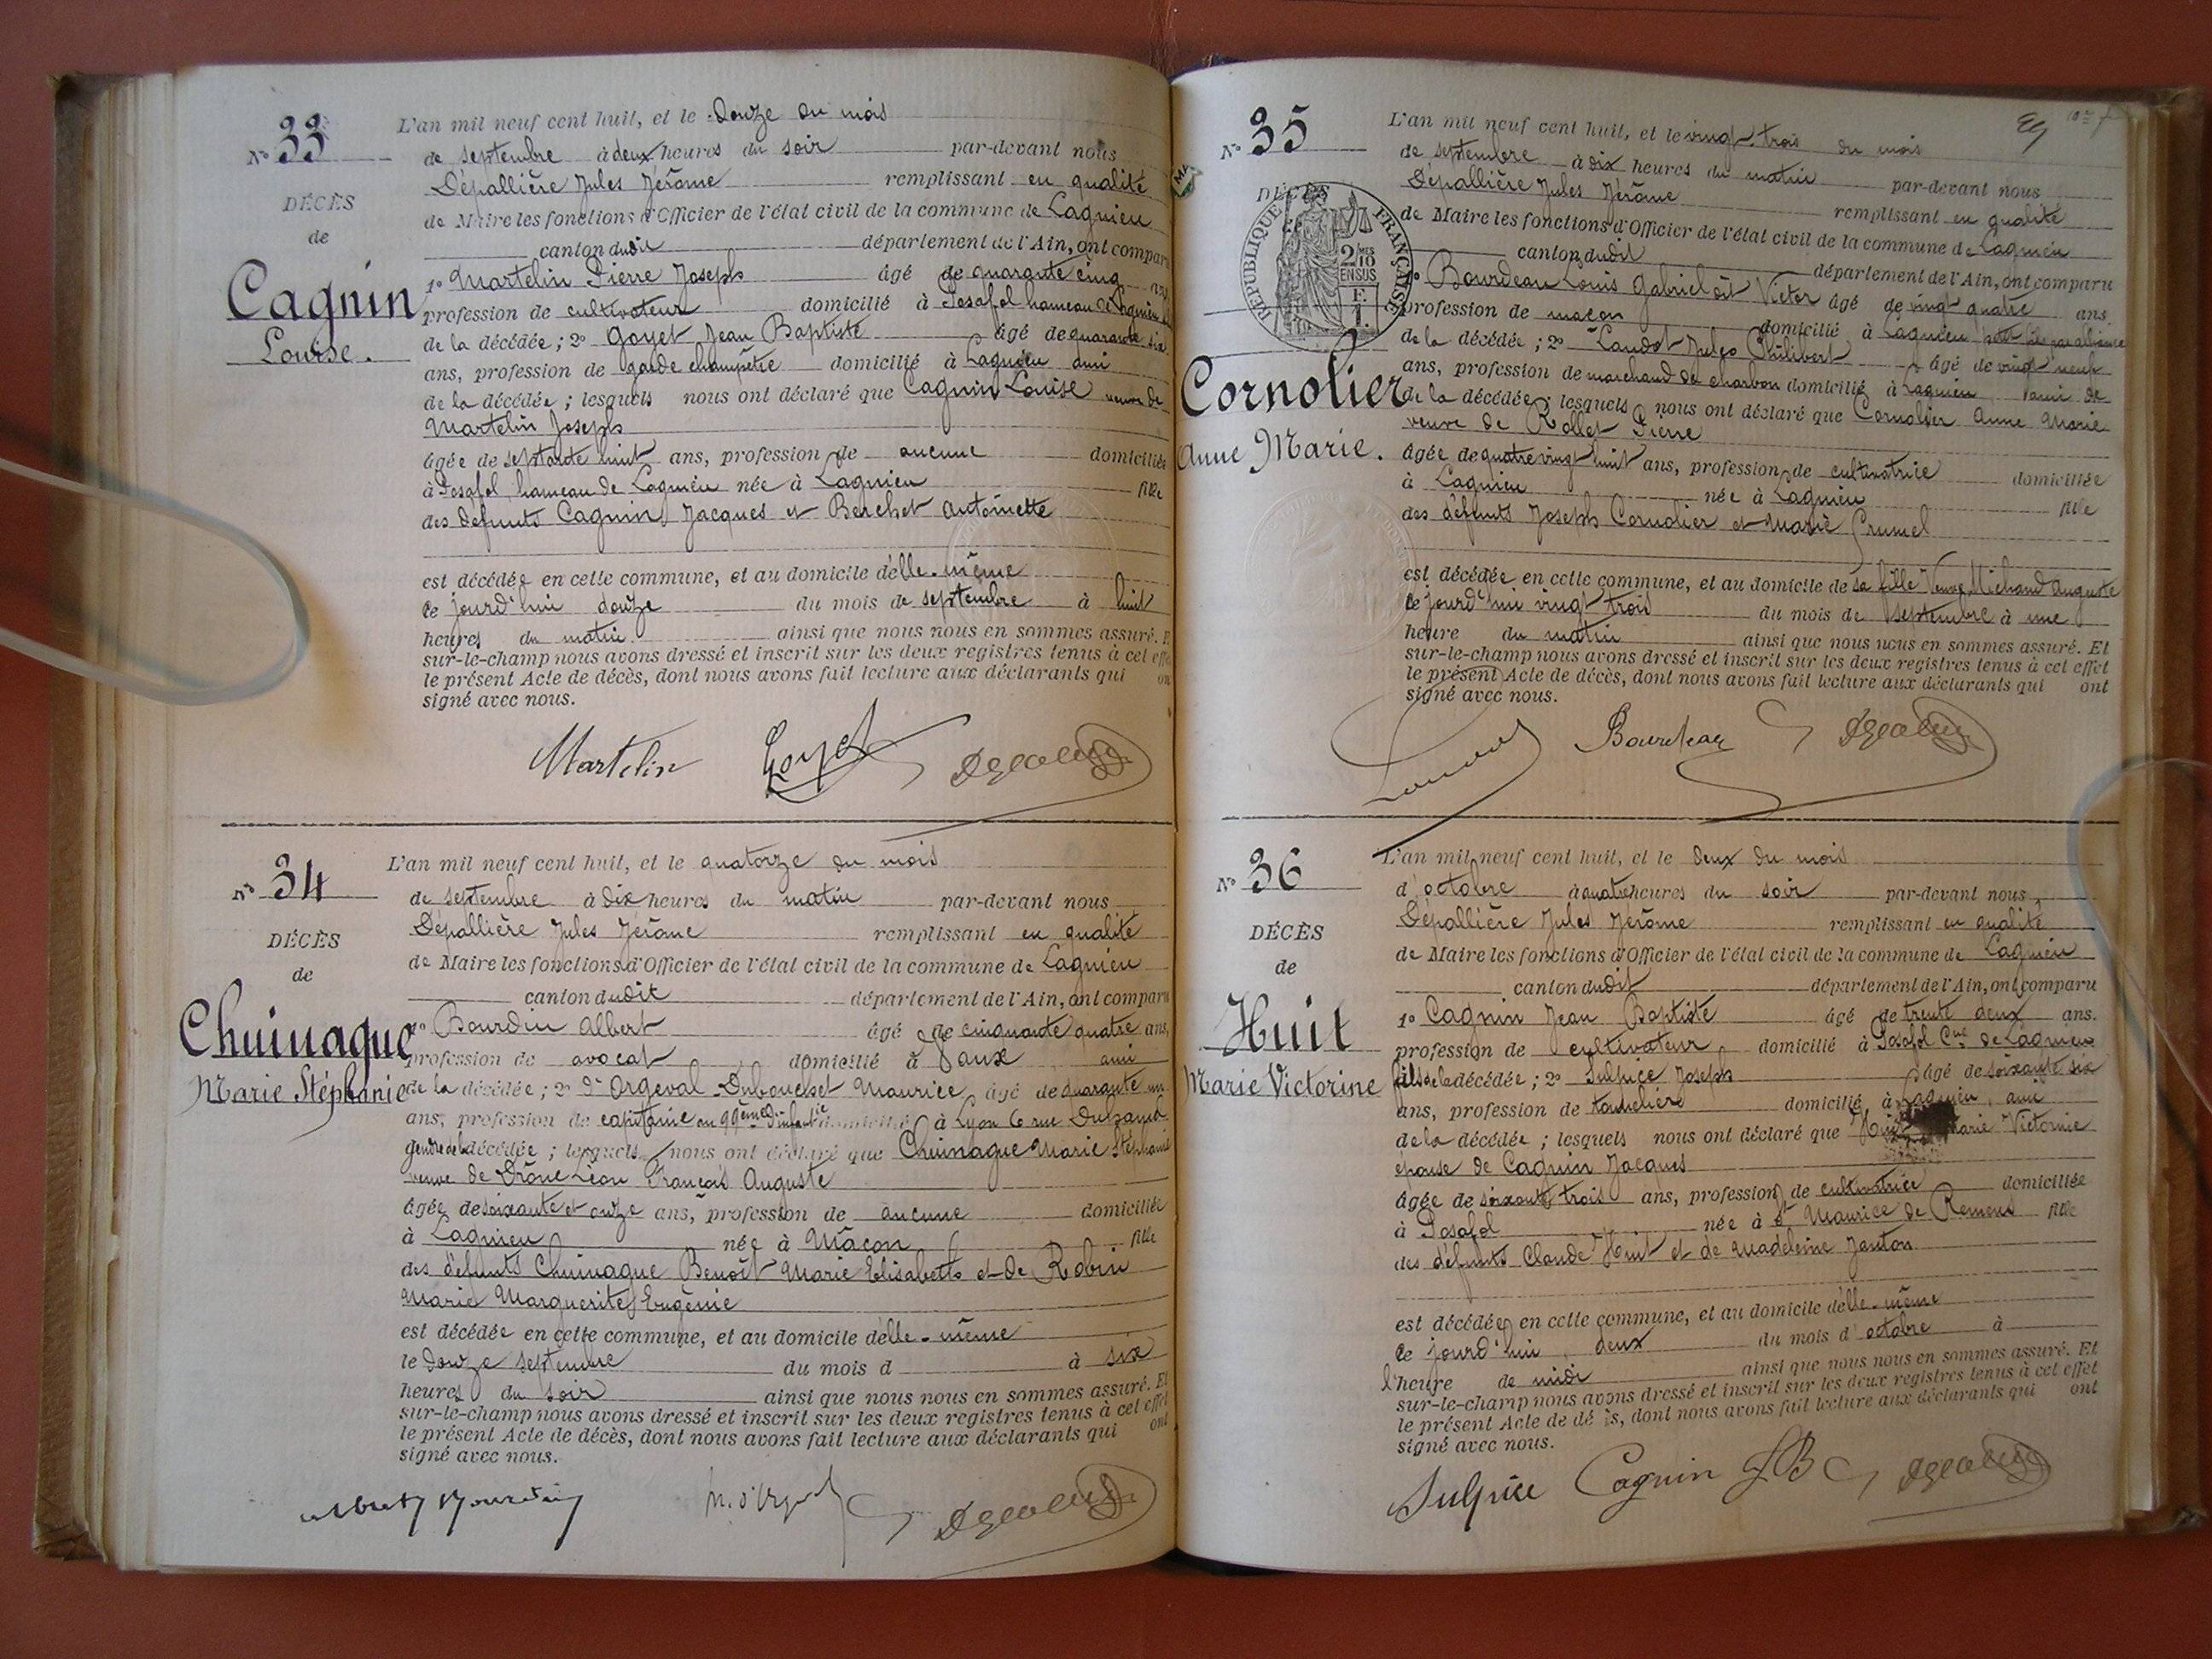 N° 33
DÉCÈS
de
Cagnin
Louise.
L'an mil neuf cent huit, et le douze du mois
de septembre à deux heures du soir par-devant nous
Dépallière Jules Jérôme remplissant en qualité
de Maire les fonctions d'Officier de l'état civil de la commune de Lagnieu
canton dudit département de l'Ain, ont comparu
1° Martelin Pierre Joseph âgé de quarante cinq ans,
profession de cultivateur domicilié à Posafol hameau de Lagnieu
de la décédée; 2° Goyet Jean Baptiste âgé de quarante six
ans, profession de garde champêtre domicilié à Lagnieu ami
de la décédée; lesquels nous ont déclaré que Cagnin Louise veuve de
Martelin Joseph
âgée de septante huit ans, profession de aucune domiciliée
à Posafol, hameau de Lagnieu née à Lagnieu fille
des défunts Cagnin Jacques et Berchet Antoinette
est décédée en cette commune, et au domicile d'elle-même
ce jourd'hui douze du mois de septembre à huit
heures du matin. ainsi que nous nous en sommes assuré. E
sur-le-champ nous avons dressé et inscrit sur les deux registres tenus à cet effe
le présent Acte de décès, dont nous avons fait lecture aux déclarants qui on
signé avec nous.
Martelin Goyet
N° 34
DÉCÈS
de
Chuinague
Marie Stéphanie
L'an mil neuf cent huit, et le quatorze du mois
de septembre à dix heures du matin par-devant nous
Dépallière Jules Jérôme remplissant en qualité
de Maire les fonctions d'Officier de l'état civil de la commune de Lagnieu
canton dudit département de l'Ain, ont comparu
1° Bourdin Albert âgé de cinquante quatre ans,
profession de avocat domicilié à Vaux ami
de la décédée; 2° d'Orgeval Dubouchet Maurice, âgé de quarante un
ans, profession de capitaine au 99ème d'infantie domicilié à Lyon 6 rue
gendre de la décédée; lesquels nous ont déclaré que Chuinague Marie Stéphanie
veuve de Drône Léon François Auguste
âgée de soixante et onze ans, profession de aucune domiciliée
à Lagnieu née à Mâcon fille
des défunts Chuinague Benoît Marie Elisabeth et de Robin
Marie Marguerite Eugénie
est décédée en cette commune, et au domicile d'elle-même
le douze septembre du mois d à six
heures du soir ainsi que nous nous en sommes assuré. Et
sur-le-champ nous avons dressé et inscrit sur les deux registres tenus à cet effet
le présent Acte de décès, dont nous avons fait lecture aux déclarants qui ont
signé avec nous.
Albert Bourdin
N° 35
DÉCÈS
de
RÉPUBLIQUE FRANÇAISE
2/10 EN SUS
Cornolier
Anne Marie.
L'an mil neuf cent huit, et le vingt-trois du mois
de septembre à dix heures du matin par-devant nous
Dépallière Jules Jérôme remplissant en qualité
de Maire les fonctions d'Officier de l'état civil de la commune de Lagnieu
canton dudit département de l'Ain, ont comparu
1° Bourdeau Louis Gabriel dit Victor âgé de vingt quatre ans,
profession de maçon domicilié à Lagnieu petit fils par alliance
de la décédée; 2° Landot Jules Philibert âgé de vingt neuf
ans, profession de marchand de charbon domicilié à Lagnieu ami de
de la décédée; lesquels nous ont déclaré que Cornolier Anne Marie
veuve de Rollet Pierre
âgée de quatre vingt huit ans, profession de cultivatrice domiciliée
à Lagnieu née à Lagnieu fille
des défunts Joseph Cornolier et Marie Grumel
est décédée en cette commune, et au domicile de sa fille Veuve Michaud Auguste
ce jourd'hui vingt trois du mois de septembre à une
heure du matin ainsi que nous nous en sommes assuré. Et
sur-le-champ nous avons dressé et inscrit sur les deux registres tenus à cet effet
le présent Acte de décès, dont nous avons fait lecture aux déclarants qui ont
signé avec nous.
Bourdeau
N° 36
DÉCÈS
de
Huit
Marie Victorine
L'an mil neuf cent huit, et le deux du mois
d'octobre à quatre heures du soir par-devant nous,
Dépallière Jules Jérôme remplissant en qualité
de Maire les fonctions d'Officier de l'état civil de la commune de Lagnieu
canton dudit département de l'Ain, ont comparu
1° Cagnin Jean Baptiste âgé de trente deux ans.
profession de cultivateur domicilié à Posafol Cne de Lagnieu
fils de la décédée; 2° Sulpice Joseph âgé de soixante six
ans, profession de tonnelier domicilié à Lagnieu, ami
de la décédée; lesquels nous ont déclaré que Huit Marie Victorine
épouse de Cagnin Jacques
âgée de soixante trois ans, profession de cultivatrice domiciliée
à Posafol née à St Maurice de Remens fille
des défunts Claude Huit et de Madeleine Janton
est décédée en cette commune, et au domicile d'elle-même
ce jourd'hui deux du mois d'octobre à
l'heure de midi ainsi que nous nous en sommes assuré. Et
sur-le-champ nous avons dressé et inscrit sur les deux registres tenus à cet effet
le présent Acte de dé is, dont nous avons fait lecture aux déclarants qui ont
signé avec nous.
Sulpice Cagnin JB